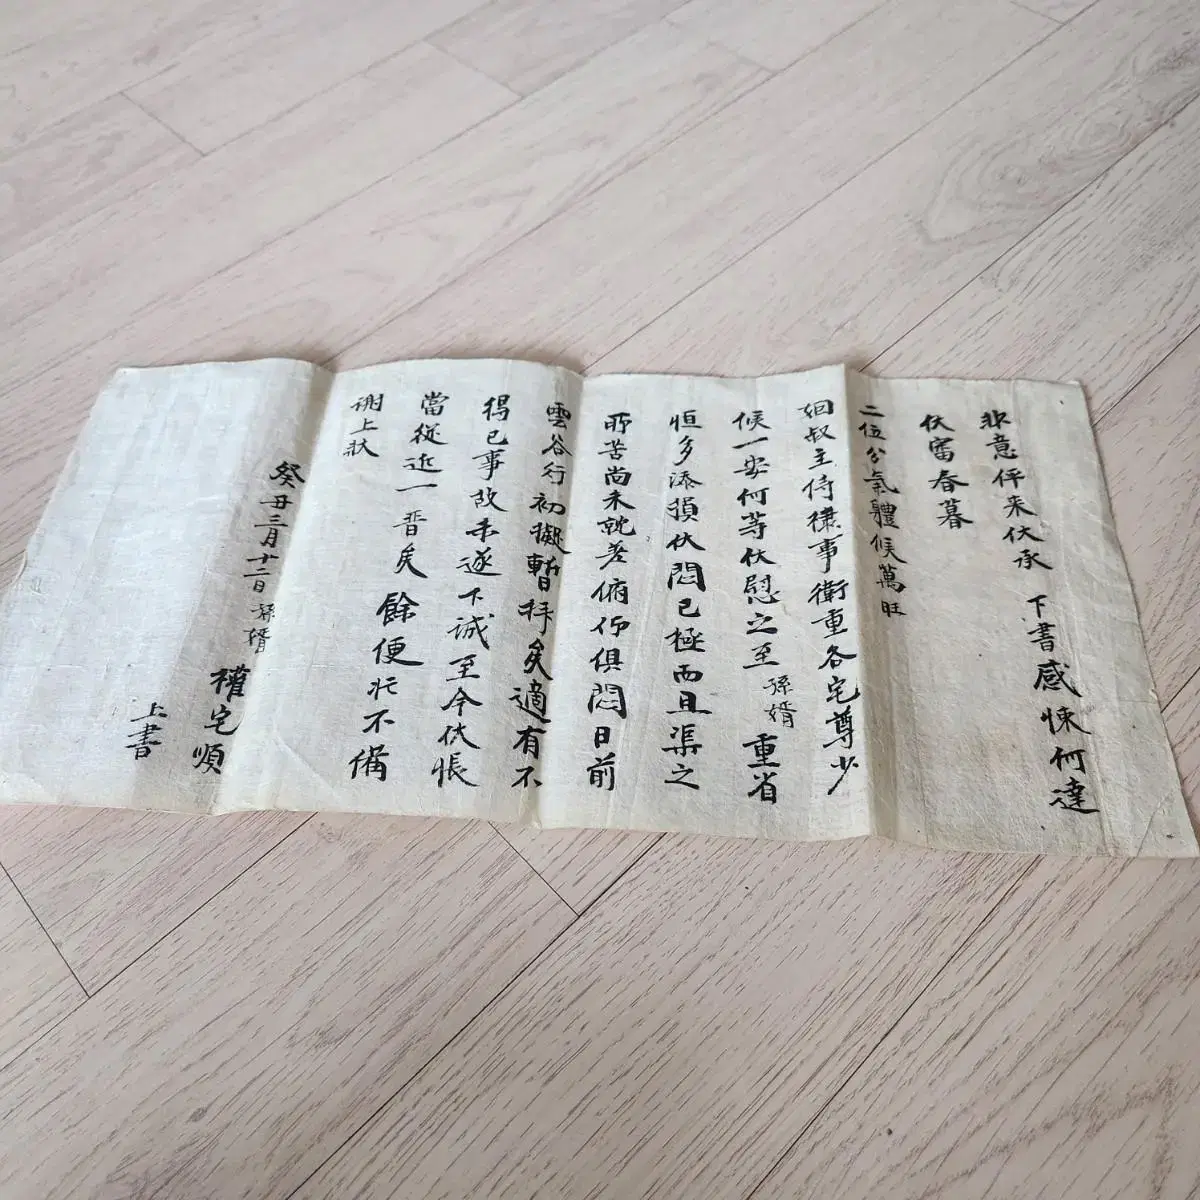 非意伻来伏承 下書感悚何達
伏審春暮
二位分氣體候萬旺
姻叔主侍棣事衛重各宅尊少
候一安何等伏慰之至孫婿重省
恒多添損伏悶已極而且渠之
所苦尚未就差俯仰俱悶日前
雲谷行初擬暫拜矣適有不
得已事故未遂下誠至今伏悵
當從近一晋矣餘便忙不備
謝上狀
癸丑三月十二日孫婿權宅順
上書